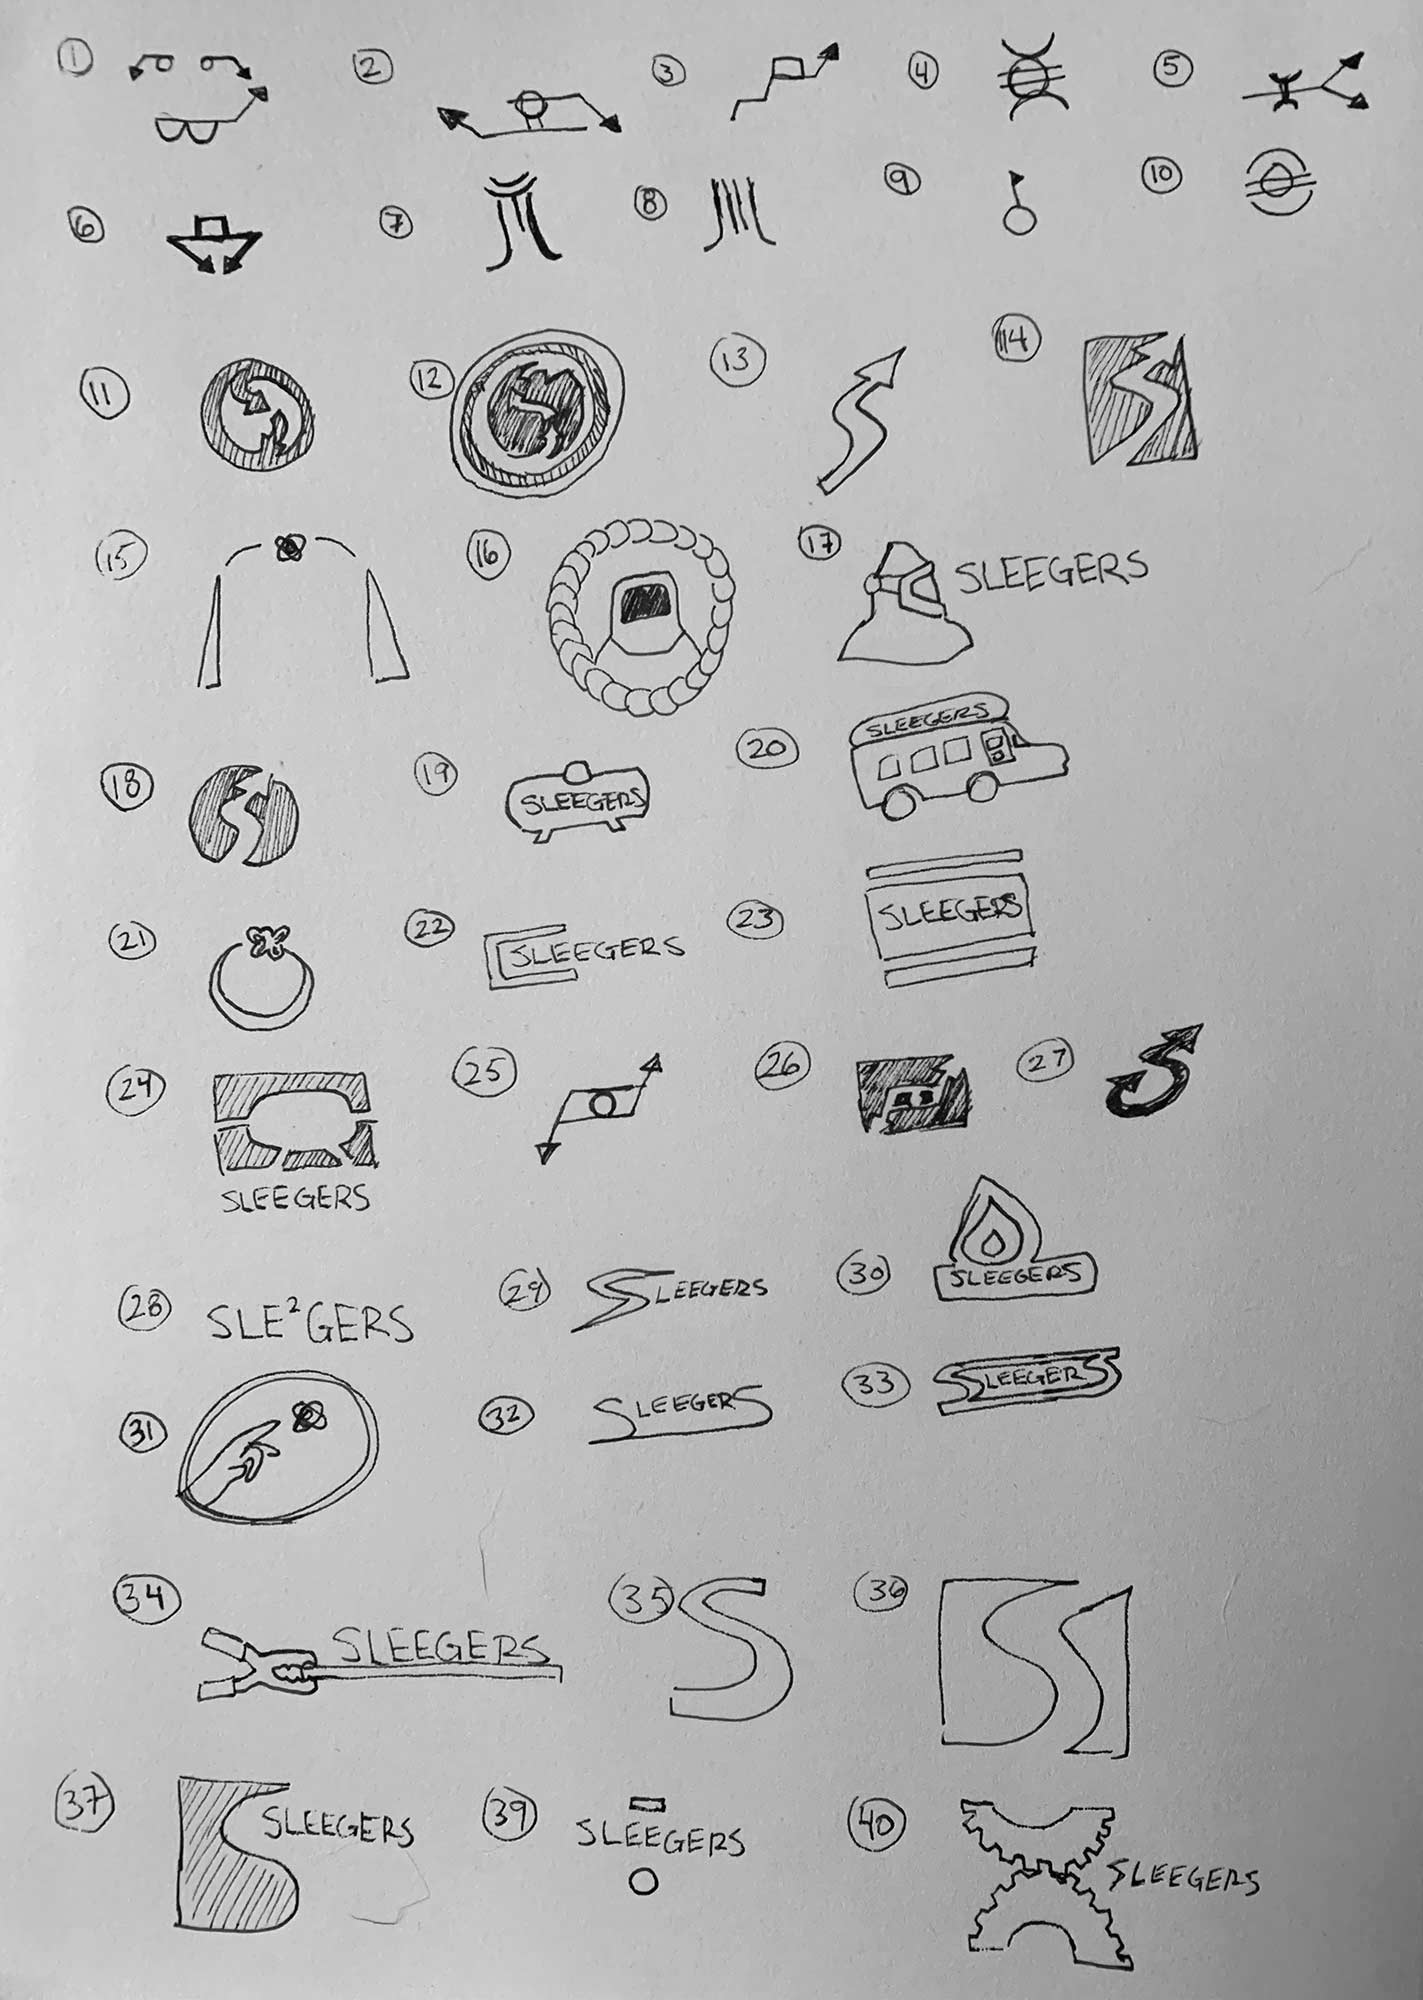 1 2 3 4 5
6 7 8 9 10
11 12 13 14
15 16 17 SLEEGERS
18 19 SLEEGERS 20 SLEEGERS
21 22 SLEEGERS 23 SLEEGERS
24 SLEEGERS 25 26 27
28 SLE²GERS 29 SLEEGERS 30 SLEEGERS
31 32 SLEEGERS 33 SLEEGERS
34 SLEEGERS 35 36
37 SLEEGERS 39 SLEEGERS 40 SLEEGERS